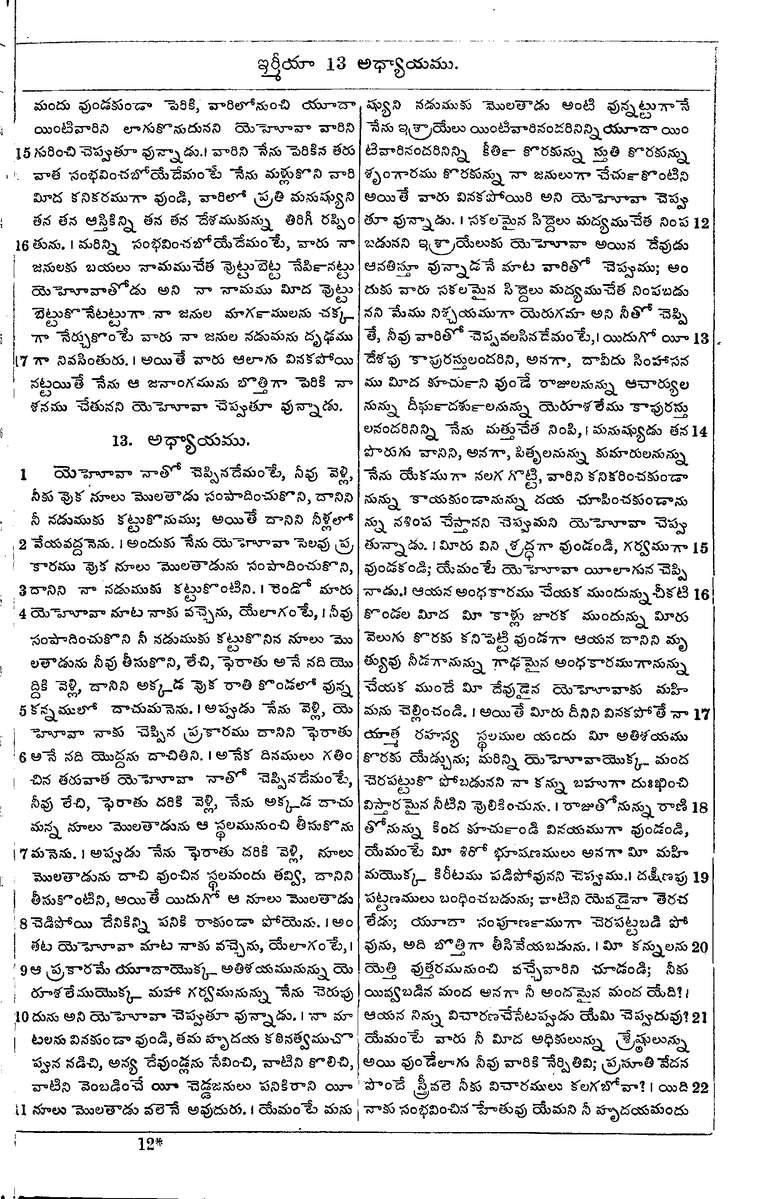 ఇర్మీయా 13 అధ్యాయము.
మందు వుండకుండా పెరికి, వారిలోనుంచి యూదా
యింటివారిని లాగుకొనుదునని యెహెూవా వారిని
15 గురించి చెప్పుతూ వున్నాడు. । వారిని నేను పెరికిన తరు
వాత సంభవించబోయేదేమంటే నేను మళ్లుకొని వారి
మీద కనికరముగా వుండి, వారిలో ప్రతి మనుష్యుని
తన తన ఆస్తికిన్ని తన తన దేశముకున్ను తిరిగీ రప్పిం
16 తును. । మరిన్ని సంభవించబోయేదేమంటే, వారు నా
జనులకు బయలు నామముచేత వొట్టుబెట్ట నేపిన౯ట్టు
యెహెూవాతోడు అని నా నామము మీద వొట్టు
బెట్టుకొనేటట్టుగా నా జనుల మాగ౯ములను చక్క
గా నేర్చుకొంటే వారు నా జనుల నడుమను దృఢము
17 గా నివసింతురు. । అయితే వారు ఆలాగు వినకపోయి
నట్టయితే నేను ఆ జనాంగమును బొత్తిగా పెరికి నా
శనము చేతునని యెహెూవా చెప్పుతూ వున్నాడు.
13. అధ్యాయము.
1 యెహెూవా నాతో చెప్పినదేమంటే, నీవు వెళ్లి,
నీకు వొక నూలు మొలతాడు సంపాదించుకొని, దానిని
నీ నడుముకు కట్టుకొనుము; అయితే దానిని నీళ్లలో
2 వేయవద్దనెను. । అందుకు నేను యెహెూవా సెలవు ప్ర
కారము వొక నూలు మొలతాడును సంపాదించుకొని,
3 దానిని నా నడుముకు కట్టుకొంటిని. । రెండో మారు
4 యెహెూవా మాట నాకు వచ్చెను, యేలాగంటే, । నీవు
సంపాదించుకొని నీ నడుముకు కట్టుకొనిన నూలు మొ
లతాడును నీవు తీసుకొని, లేచి, ఫెరాతు అనే నది యొ
ద్దికి వెళ్లి, దానిని అక్కడ వొక రాతి కొండలో వున్న
5 కన్నములో దాచుమనెను. । అప్పుడు నేను వెళ్లి, యె
హెూవా నాకు చెప్పిన ప్రకారము దానిని ఫెరాతు
6 అనే నది యొద్దను దాచితిని. । అనేక దినములు గతిం
చిన తరువాత యెహెూవా నాతో చెప్పినదేమంటే,
నీవు లేచి, ఫెరాతు దరికి వెళ్లి, నేను అక్కడ దాచు
మన్న నూలు మొలతాడును ఆ స్థలమునుంచి తీసుకొను
7 మనెను. । అప్పుడు నేను ఫెరాతు దరికి వెళ్లి, నూలు
మొలతాడును దాచి వుంచిన స్థలమందు తవ్వి, దానిని
తీసుకొంటిని, అయితే యిదుగో ఆ నూలు మొలతాడు
8 చెడిపోయి దేనికిన్ని పనికి రాకుండా పోయెను. । అం
తట యెహెూవా మాట నాకు వచ్చెను, యేలాగంటే, ।
9 ఆ ప్రకారమే యూదాయొక్క అతిశయమునున్ను యె
రూశలేముయొక్క మహా గర్వమునున్ను నేను చెరుపు
10 దును అని యెహెూవా చెప్పుతూ వున్నాడు. । నా మా
టలను వినకుండా వుండి, తమ హృదయ కఠినత్వముచొ
ప్పున నడిచి, అన్య దేవుండ్లను సేవించి, వాటిని కొలిచి,
వాటిని వెంబడించే యీ చెడ్డజనులు పనికిరాని యీ
11 నూలు మొలతాడు వలెనే అవుదురు. । యేమంటే మను
ష్యుని నడుముకు మొలతాడు అంటి వున్నట్టుగానే
నేను ఇశ్రాయేలు యింటివారినందరినిన్ని యూదా యిం
టివారినందరినిన్ని కీతి౯ కొరకున్ను స్తుతి కొరకున్ను
శృంగారము కొరకున్ను నా జనులుగా చేచు౯కొంటిని
అయితే వారు వినకపోయిరి అని యెహెూవా చెప్పు
తూ వున్నాడు. । సకలమైన సిద్దెలు మద్యముచేత నింప 12
బడునని ఇశ్రాయేలుకు యెహెూవా అయిన దేవుడు
ఆనతిస్తూ వున్నాడనే మాట వారితో చెప్పుము; అం
దుకు వారు సకలమైన సిద్దెలు మద్యముచేత నింపబడు
నని మేము నిశ్చయముగా యెరుగమా అని నీతో చెప్పి
తే, నీవు వారితో చెప్పవలసినదేమంటే, । యిదుగో యీ 13
దేశపు కాపురస్తులందరిని, అనగా, దావీదు సింహాసన
ము మీద కూచు౯ని వుండే రాజులనున్ను ఆచార్యుల
నున్ను దీఘ౯దశు౯లనున్ను యెరూశలేము కాపురస్తు
లనందరినిన్ని నేను మత్తుచేత నింపి, । మనుష్యుడు తన 14
పొరుగు వానిని, అనగా, పితృలనున్ను కుమారులనున్ను
నేను యేకముగా నలగ గొట్టి, వారిని కనికరించకుండా
నున్ను కాయకుండానున్ను దయ చూపించకుండాను
న్ను నశింప చేస్తానని చెప్పుమని యెహెూవా చెప్పు
తున్నాడు. । మీరు విని శ్రద్ధగా వుండండి, గర్వముగా 15
వుండకండి; యేమంటే యెహెూవా యీలాగున చెప్పి
నాడు. । ఆయన అంధకారము చేయక ముందున్ను చీకటి 16
కొండల మీద మీ కాళ్లు జారక ముందున్ను మీరు
వెలుగు కొరకు కనిపెట్టి వుండగా ఆయన దానిని మృ
త్యువు నీడగానున్ను గాఢమైన అంధకారముగానున్ను
చేయక ముందే మీ దేవుడైన యెహెూవాకు మహి
మను చెల్లించండి. । అయితే మీరు దీనిని వినకపోతే నా 17
యాత్మ రహస్య స్థలముల యందు మీ అతిశయము
కొరకు యేడ్చును; మరిన్ని యెహెూవాయొక్క మంద
చెరపట్టుకొ పోబడునని నా కన్ను బహుగా దుఃఖించి
విస్తారమైన నీటిని వొలికించును. । రాజుతోనున్ను రాణి 18
తోనున్ను కింద కూచు౯ండి వినయముగా వుండండి,
యేమంటే మీ శిరో భూషణములు అనగా మీ మహి
మయొక్క కిరీటము పడిపోవునని చెప్పుము. । దక్షిణపు 19
పట్టణములు బంధించబడును; వాటిని యెవడైనా తెరచ
లేడు; యూదా సంపూణ౯ముగా చెరపట్టబడి పో
వును, అది బొత్తిగా తీసివేయబడును. । మీ కన్నులను 20
యెత్తి వుత్తరమునుంచి వచ్చేవారిని చూడండి; నీకు
యివ్వబడిన మంద అనగా నీ అందమైన మంద యేది? ।
ఆయన నిన్ను విచారణచేసేటప్పుడు యేమి చెప్పుదువు? 21
యేమంటే వారు నీ మీద అధికులున్ను శ్రేష్ఠులున్ను
అయి వుండేలాగు నీవు వారికి నేర్పితివి; ప్రసూతి వేదన
పొందే స్త్రీవలె నీకు విచారములు కలగబోవా? । యిది 22
నాకు సంభవించిన హేతువు యేమని నీ హృదయమందు
12*